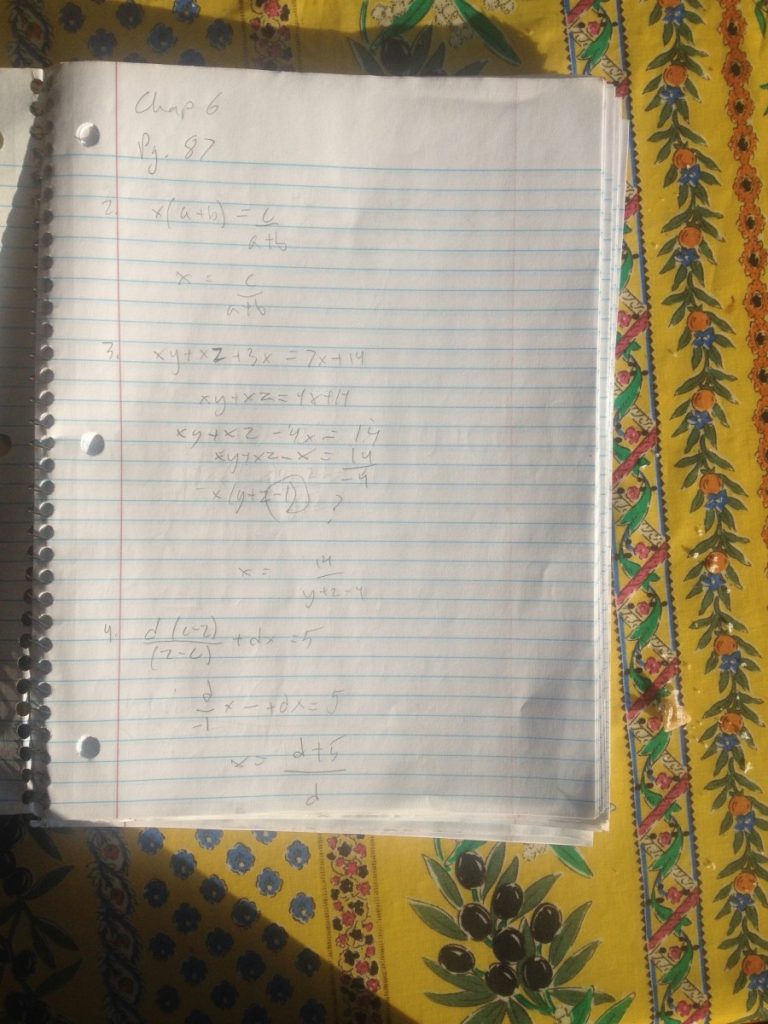 Chap 6
Pg. 87
2. x(a+b) = c
a+b
x = c
a+b
3. xy+xz+3x = 7x+14
xy+xz = 4x+14
xy+xz -4x = 14
xy+xz-x = 14
-4
x(y+z-1) ?
x = 14
y+z-4
4. d(c-z) +dx = 5
(z-c)
d x - +dx = 5
-1
x = d+5
d